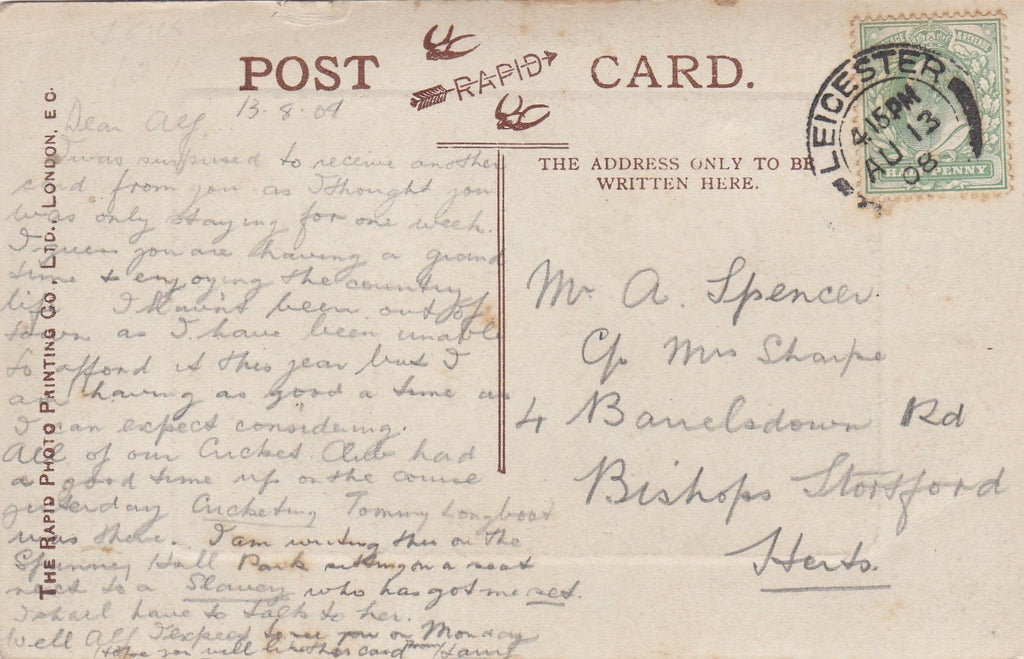 POST CARD.
RAPID
THE ADDRESS ONLY TO BE
WRITTEN HERE.
LEICESTER
4.15 PM
AU 13
08
HALFPENNY
THE RAPID PHOTO PRINTING CO., LTD., LONDON, E.C.
13.8.08
Dear Alf,
I was surprised to receive another
card from you as I thought you
was only staying for one week.
I guess you are having a grand
time & enjoying the country
life. I havn't been out of
town as I have been unable
to afford it this year but I
am having as good a time as
I can expect considering.
All of our Cricket Club had
a good time up on the course
yesterday Cricketing Tommy Longboat
was there. I am writing this on the
Spinney Hall Park sitting on a seat
next to a Slavey who has got me set.
I shall have to talk to her.
Well Alf I expect to see you on Monday
Hope you will like this card from Harry
Mr A. Spencer.
C/o Mrs Sharpe
4 Barrelsdown Rd
Bishops Stortford
Herts.